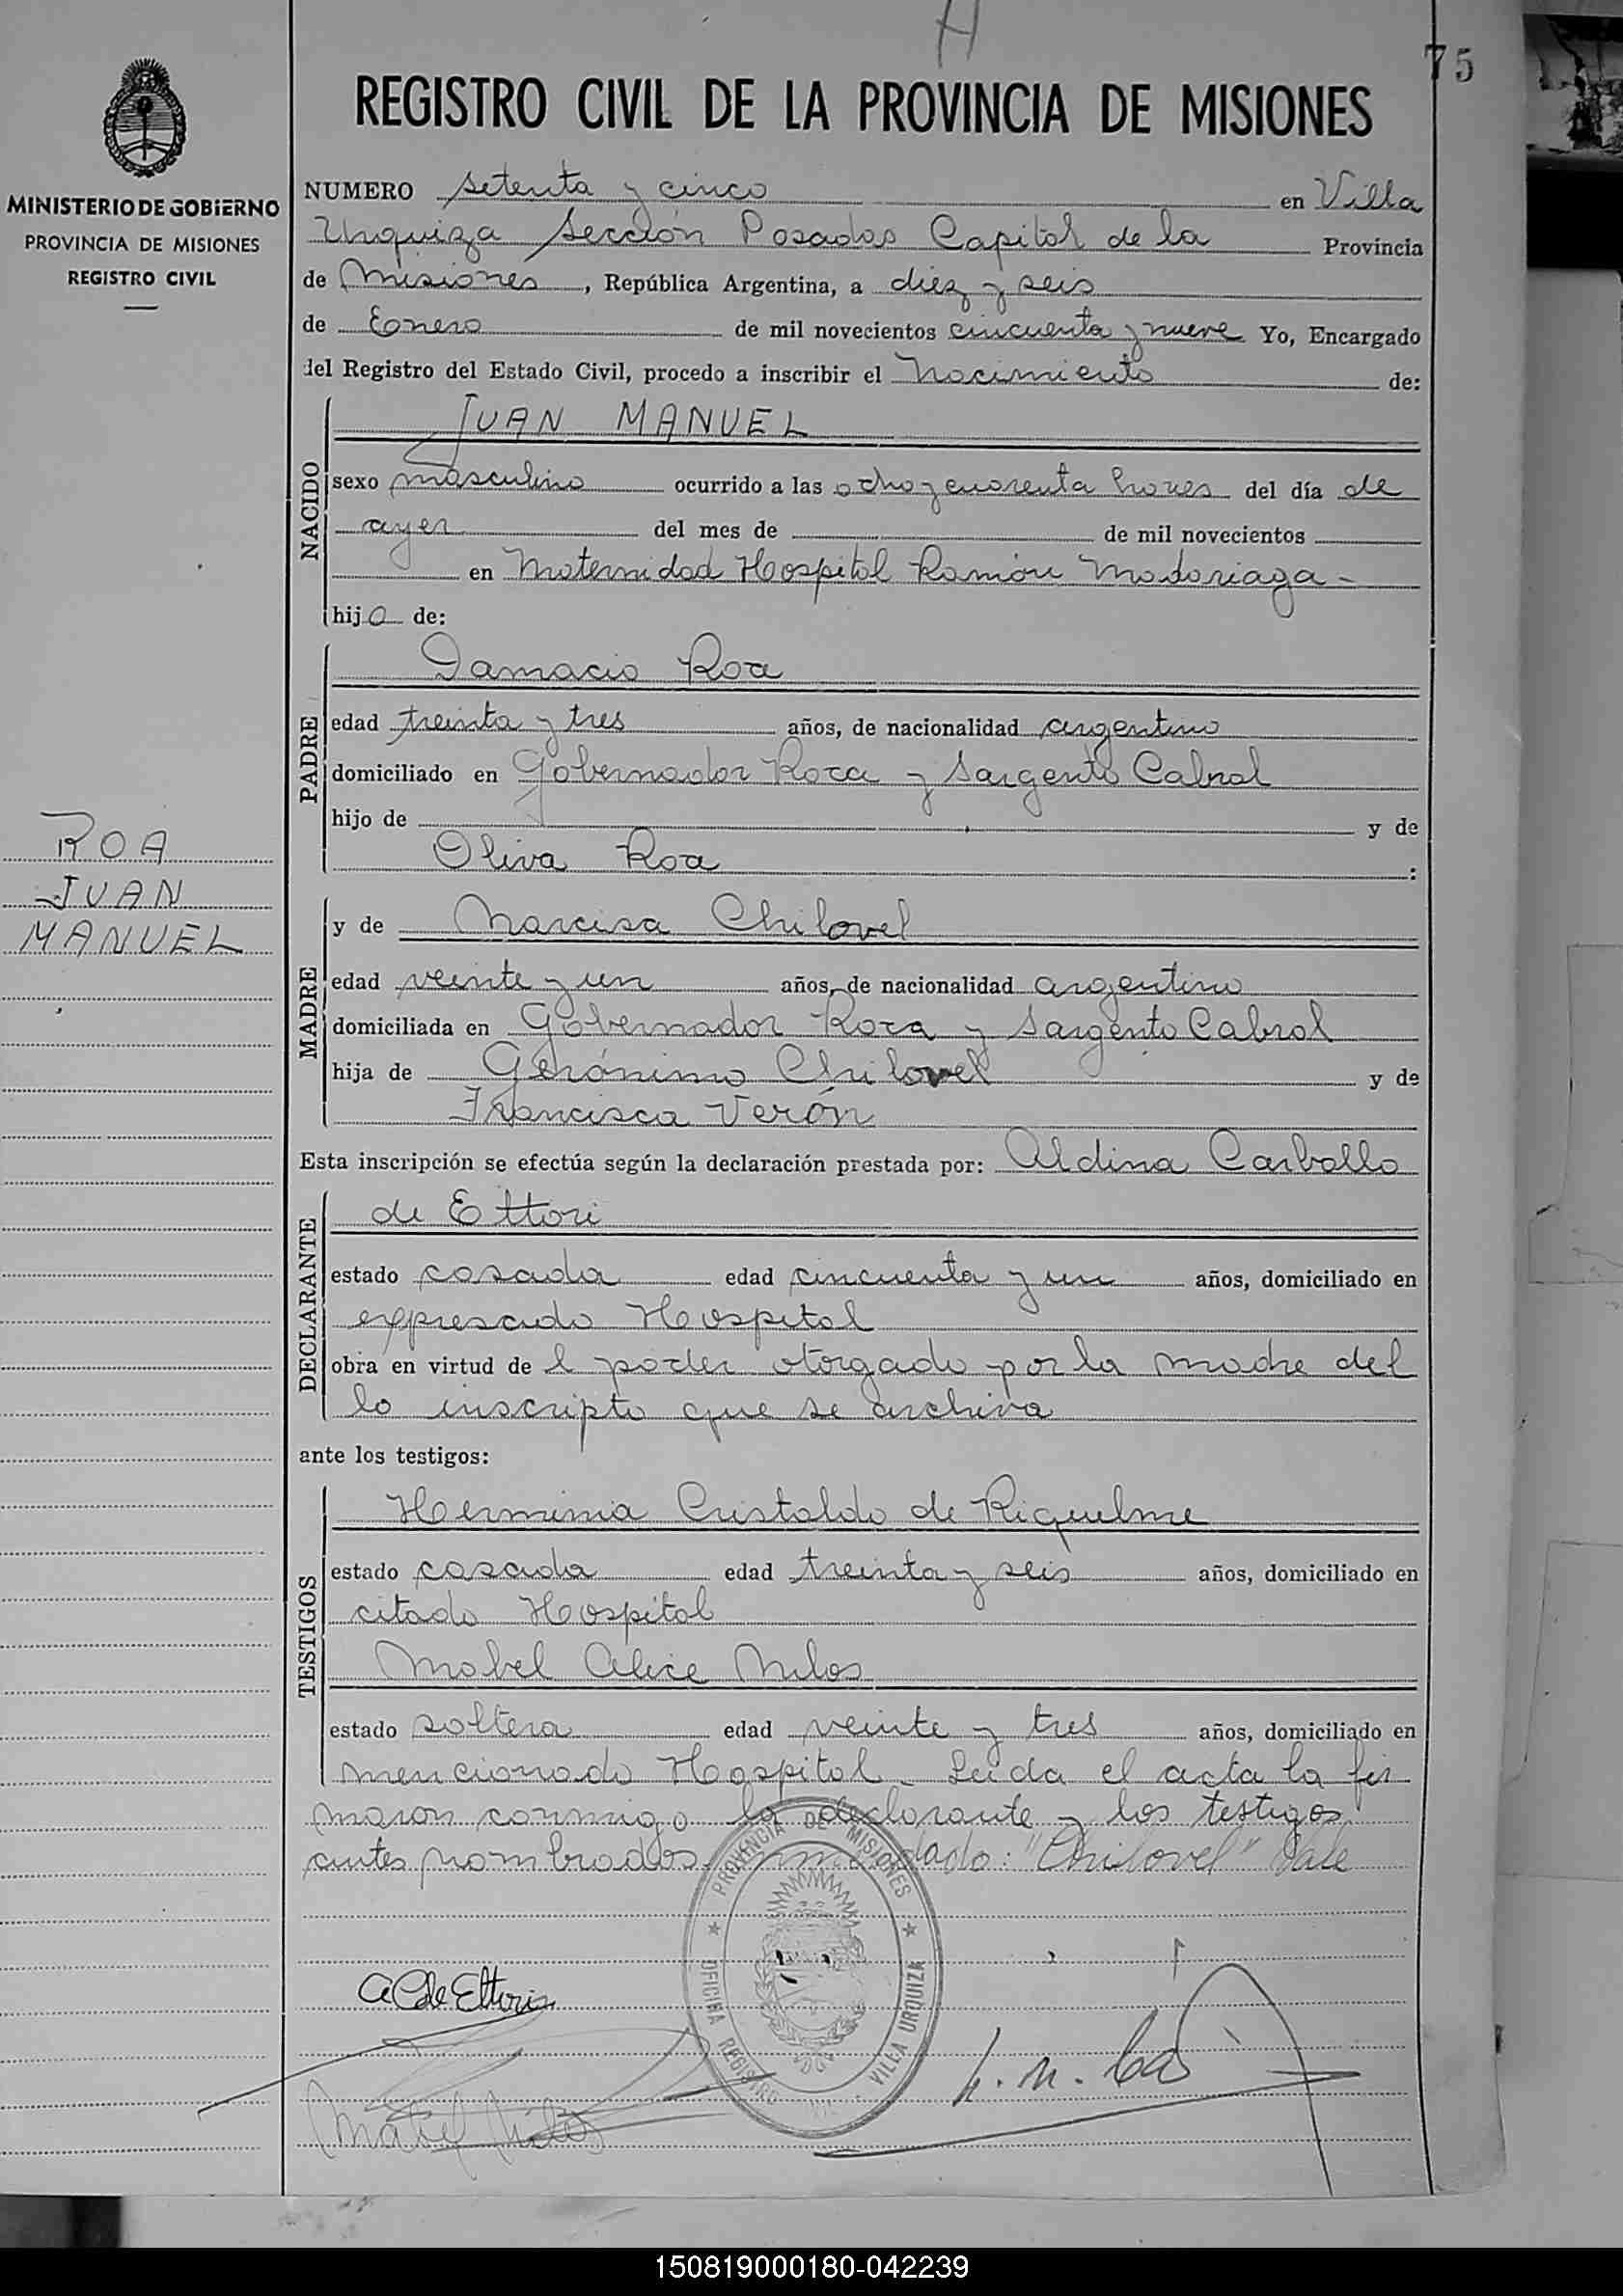 75
REGISTRO CIVIL DE LA PROVINCIA DE MISIONES
MINISTERIO DE GOBIERNO
PROVINCIA DE MISIONES
REGISTRO CIVIL
NUMERO setenta y cinco en Villa
Urquiza Sección Posadas Capital de la Provincia
de Misiones, República Argentina, a diez y seis
de Enero de mil novecientos cincuenta y nueve Yo, Encargado
del Registro del Estado Civil, procedo a inscribir el Nacimiento de:
NACIDO
JUAN MANUEL
sexo masculino ocurrido a las ocho y cuarenta horas del día de
ayer del mes de de mil novecientos
en Maternidad Hospital Ramón Madariaga -
hijo de:
PADRE
Damacio Roa
edad treinta y tres años, de nacionalidad argentino
domiciliado en Gobernador Roca y Sargento Cabral
hijo de y de
Oliva Roa :
ROA
JUAN
MANUEL
MADRE
y de Narcisa Chilovel
edad veinte y un años, de nacionalidad argentina
domiciliada en Gobernador Roca y Sargento Cabral
hija de Gerónimo Chilovel y de
Francisca Verón
Esta inscripción se efectúa según la declaración prestada por: Aldina Carballo
DECLARANTE
de Ettori
estado casada edad cincuenta y un años, domiciliado en
expresado Hospital
obra en virtud de l poder otorgado por la madre del
lo inscripto que se archiva
ante los testigos:
TESTIGOS
Herminia Cristaldo de Riquelme
estado casada edad treinta y seis años, domiciliado en
citado Hospital
Mabel Alice Milos
estado soltera edad veinte y tres años, domiciliado en
mencionado Hospital - Leida el acta la fir
maron conmigo la declarante y los testigos
antes nombrados. "Chilovel" Vale
PROVINCIA DE MISIONES
OFICINA REGISTRO VILLA URQUIZA
A C de Ettori
150819000180-042239